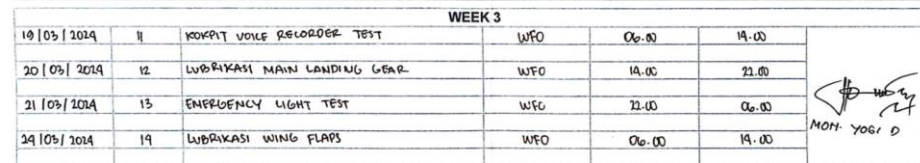 WEEK 3
19/03/2024 11 KOKPIT VOICE RECORDER TEST WFO 06.00 14.00
20/03/2024 12 LUBRIKASI MAIN LANDING GEAR WFO 14.00 22.00
21/03/2024 13 EMERGENCY LIGHT TEST WFO 22.00 06.00
24/03/2024 14 LUBRIKASI WING FLAPS WFO 06.00 14.00
MOH. YOGI D